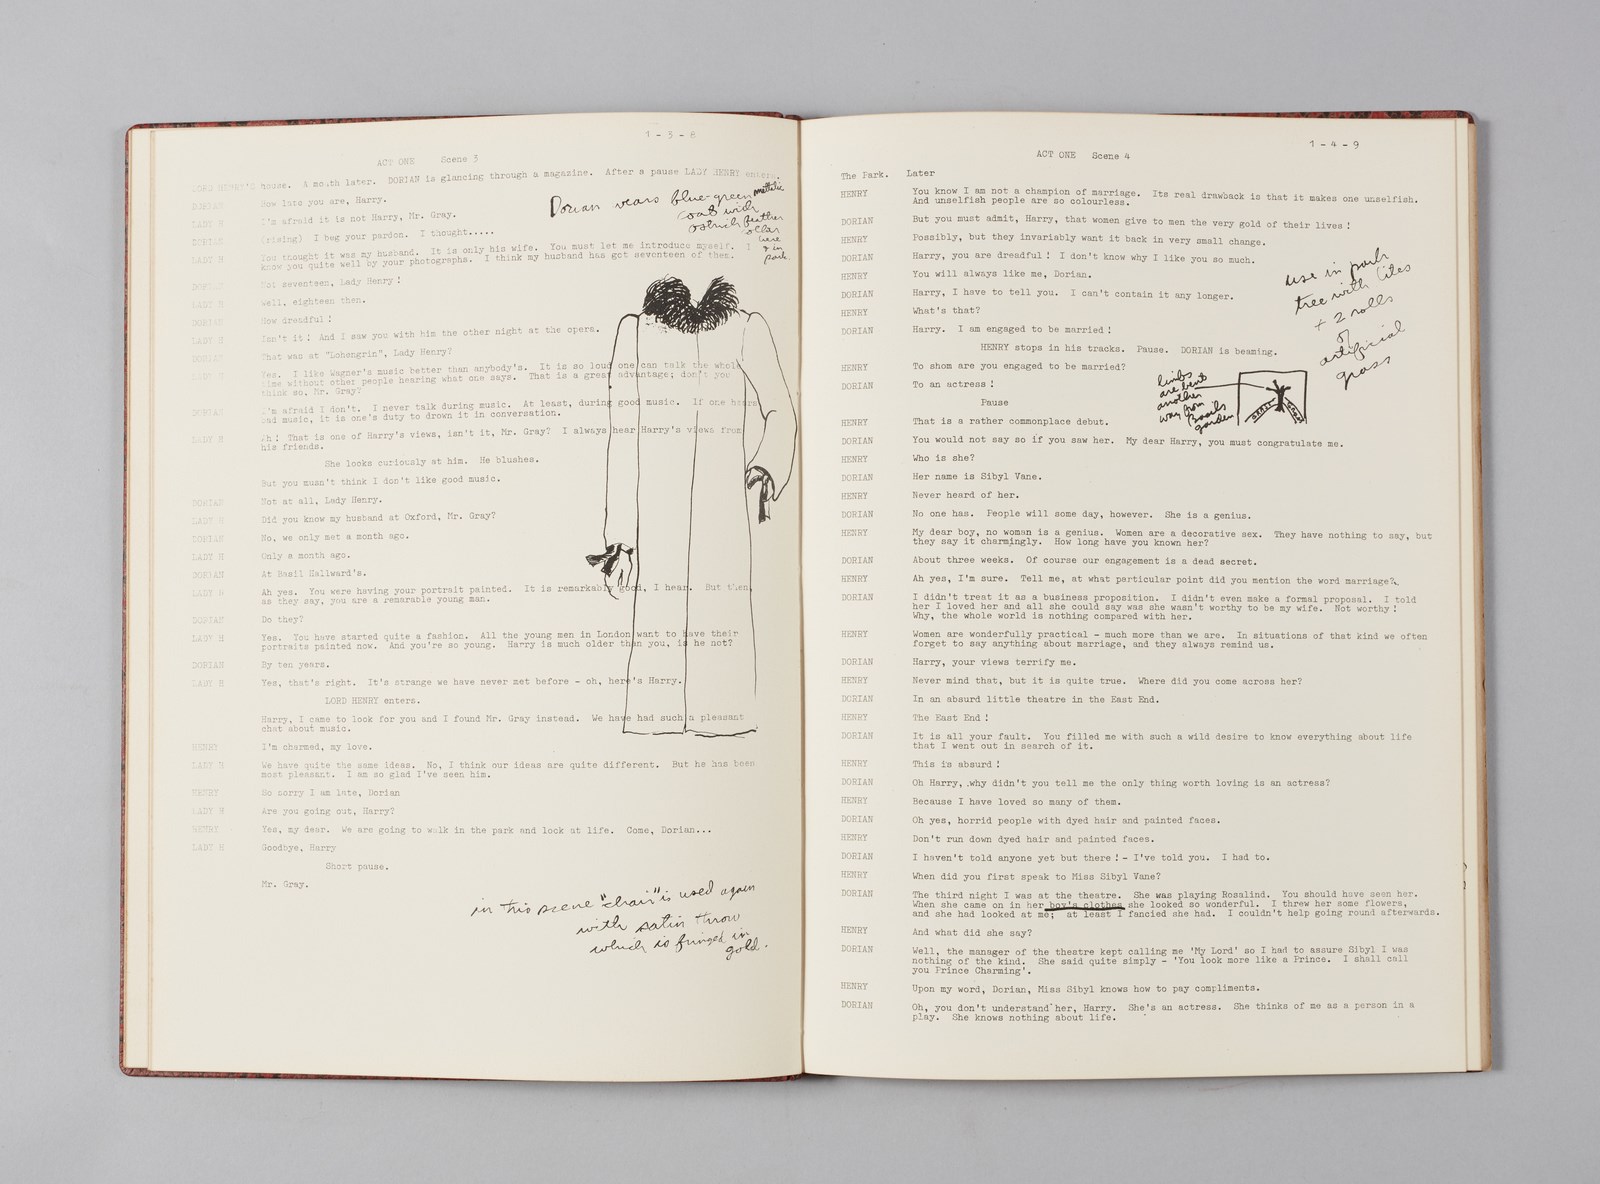 1 - 3 - 8
ACT ONE Scene 3
LORD HENRY'S house. A month later. DORIAN is glancing through a magazine. After a pause LADY HENRY enters.
DORIAN How late you are, Harry.
LADY H I'm afraid it is not Harry, Mr. Gray.
DORIAN (rising) I beg your pardon. I thought.....
LADY H You thought it was my husband. It is only his wife. You must let me introduce myself. I
know you quite well by your photographs. I think my husband has got seventeen of them.
DORIAN Not seventeen, Lady Henry!
LADY H Well, eighteen then.
DORIAN How dreadful!
LADY H Isn't it! And I saw you with him the other night at the opera.
DORIAN That was at "Lohengrin", Lady Henry?
LADY H Yes. I like Wagner's music better than anybody's. It is so loud one can talk the whole
time without other people hearing what one says. That is a great advantage; don't you
think so, Mr. Gray?
DORIAN I'm afraid I don't. I never talk during music. At least, during good music. If one hears
bad music, it is one's duty to drown it in conversation.
LADY H Ah! That is one of Harry's views, isn't it, Mr. Gray? I always hear Harry's views from
his friends.
She looks curiously at him. He blushes.
But you musn't think I don't like good music.
DORIAN Not at all, Lady Henry.
LADY H Did you know my husband at Oxford, Mr. Gray?
DORIAN No, we only met a month ago.
LADY H Only a month ago.
DORIAN At Basil Hallward's.
LADY H Ah yes. You were having your portrait painted. It is remarkably good, I hear. But then,
as they say, you are a remarable young man.
DORIAN Do they?
LADY H Yes. You have started quite a fashion. All the young men in London want to have their
portraits painted now. And you're so young. Harry is much older than you, is he not?
DORIAN By ten years.
LADY H Yes, that's right. It's strange we have never met before - oh, here's Harry.
LORD HENRY enters.
Harry, I came to look for you and I found Mr. Gray instead. We have had such a pleasant
chat about music.
HENRY I'm charmed, my love.
LADY H We have quite the same ideas. No, I think our ideas are quite different. But he has been
most pleasant. I am so glad I've seen him.
HENRY So sorry I am late, Dorian
LADY H Are you going out, Harry?
HENRY Yes, my dear. We are going to walk in the park and look at life. Come, Dorian...
LADY H Goodbye, Harry
Short pause.
Mr. Gray.
Dorian wears blue-green metallic
coat with
ostrich feather
collar
here
& in
park.
in this scene "chair" is used again
with satin throw
which is fringed in
gold.
1 - 4 - 9
ACT ONE Scene 4
The Park. Later
HENRY You know I am not a champion of marriage. Its real drawback is that it makes one unselfish.
And unselfish people are so colourless.
DORIAN But you must admit, Harry, that women give to men the very gold of their lives!
HENRY Possibly, but they invariably want it back in very small change.
DORIAN Harry, you are dreadful! I don't know why I like you so much.
HENRY You will always like me, Dorian.
DORIAN Harry, I have to tell you. I can't contain it any longer.
HENRY What's that?
DORIAN Harry. I am engaged to be married!
HENRY stops in his tracks. Pause. DORIAN is beaming.
HENRY To whom are you engaged to be married?
DORIAN To an actress!
Pause
HENRY That is a rather commonplace debut.
DORIAN You would not say so if you saw her. My dear Harry, you must congratulate me.
HENRY Who is she?
DORIAN Her name is Sibyl Vane.
HENRY Never heard of her.
DORIAN No one has. People will some day, however. She is a genius.
HENRY My dear boy, no woman is a genius. Women are a decorative sex. They have nothing to say, but
they say it charmingly. How long have you known her?
DORIAN About three weeks. Of course our engagement is a dead secret.
HENRY Ah yes, I'm sure. Tell me, at what particular point did you mention the word marriage?
DORIAN I didn't treat it as a business proposition. I didn't even make a formal proposal. I told
her I loved her and all she could say was she wasn't worthy to be my wife. Not worthy!
Why, the whole world is nothing compared with her.
HENRY Women are wonderfully practical - much more than we are. In situations of that kind we often
forget to say anything about marriage, and they always remind us.
DORIAN Harry, your views terrify me.
HENRY Never mind that, but it is quite true. Where did you come across her?
DORIAN In an absurd little theatre in the East End.
HENRY The East End!
DORIAN It is all your fault. You filled me with such a wild desire to know everything about life
that I went out in search of it.
HENRY This is absurd!
DORIAN Oh Harry, why didn't you tell me the only thing worth loving is an actress?
HENRY Because I have loved so many of them.
DORIAN Oh yes, horrid people with dyed hair and painted faces.
HENRY Don't run down dyed hair and painted faces.
DORIAN I haven't told anyone yet but there! - I've told you. I had to.
HENRY When did you first speak to Miss Sibyl Vane?
DORIAN The third night I was at the theatre. She was playing Rosalind. You should have seen her.
When she came on in her boy's clothes she looked so wonderful. I threw her some flowers,
and she had looked at me; at least I fancied she had. I couldn't help going round afterwards.
HENRY And what did she say?
DORIAN Well, the manager of the theatre kept calling me 'My Lord' so I had to assure Sibyl I was
nothing of the kind. She said quite simply - 'You look more like a Prince. I shall call
you Prince Charming'.
HENRY Upon my word, Dorian, Miss Sibyl knows how to pay compliments.
DORIAN Oh, you don't understand her, Harry. She's an actress. She thinks of me as a person in a
play. She knows nothing about life.
use in park
tree with lites
+ 2 rolls
of
artificial
grass
limbs
are bent
another
way from
Basils
garden